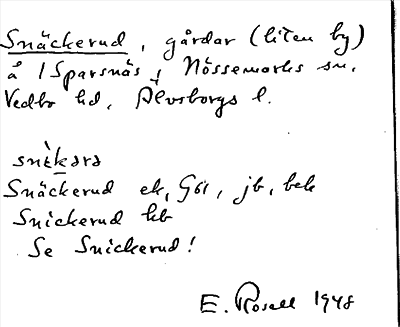 Snäckerud, gårdar (liten by)
å 1 Sparsnäs, Nössemarks sn,
Vedbo hd, Älvsborgs l.
snɛ̀kərə
Snäckerud ek, Göt, jb, bek
Snickerud kb
Se Snickerud!
E. Rosell 1948